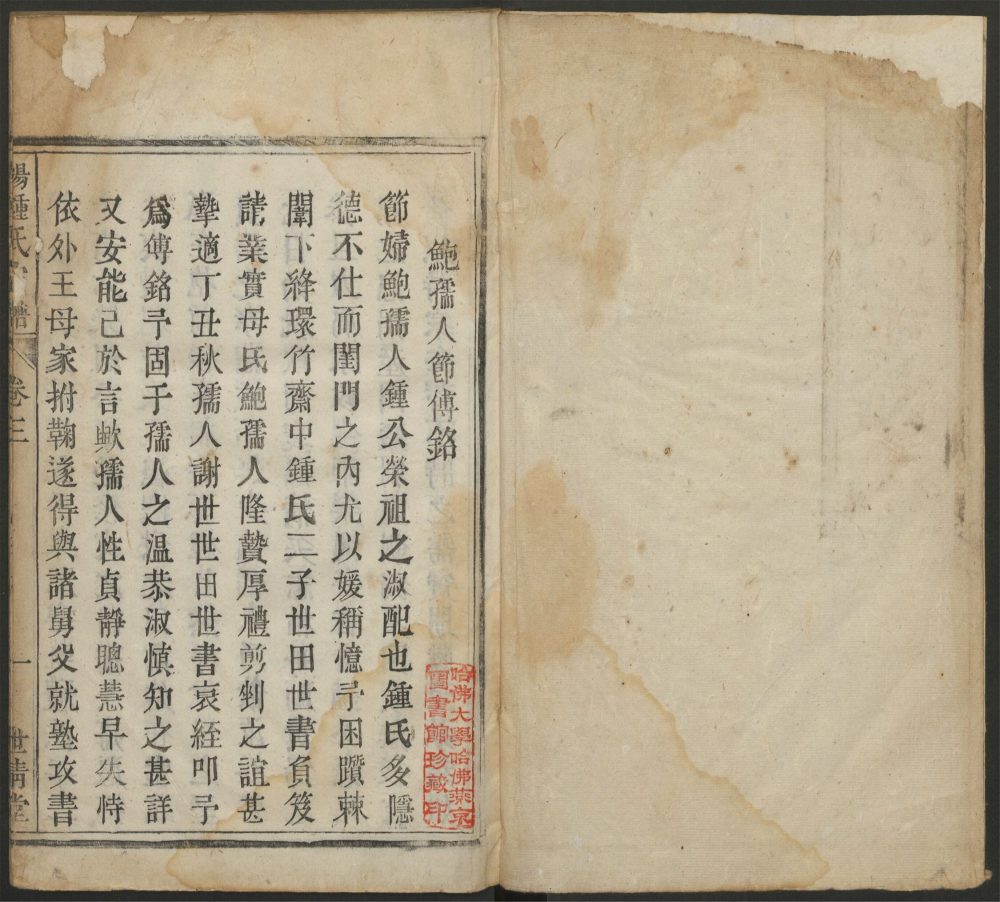 鮑孺人節傳銘
節婦鮑孺人鍾公榮祖之淑配也鍾氏多隱
德不仕而閨門之內尤以媛稱憶予困躓棘
闈下絳環竹齋中鍾氏二子世田世書負笈
請業實母氏鮑孺人隆贄厚禮剪剉之誼甚
摯適丁丑秋孺人謝世世田世書哀絰叩予
爲傳銘予固于孺人之温恭淑慎知之甚詳
又安能已於言歟孺人性貞靜聰慧早失恃
依外王母家拊鞠遂得與諸舅父就塾攻書
陽鍾氏 譜 卷三 一 世精堂
哈佛大學哈佛燕京
圖書館珍藏印